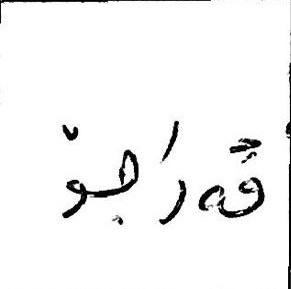 قەراجۆ